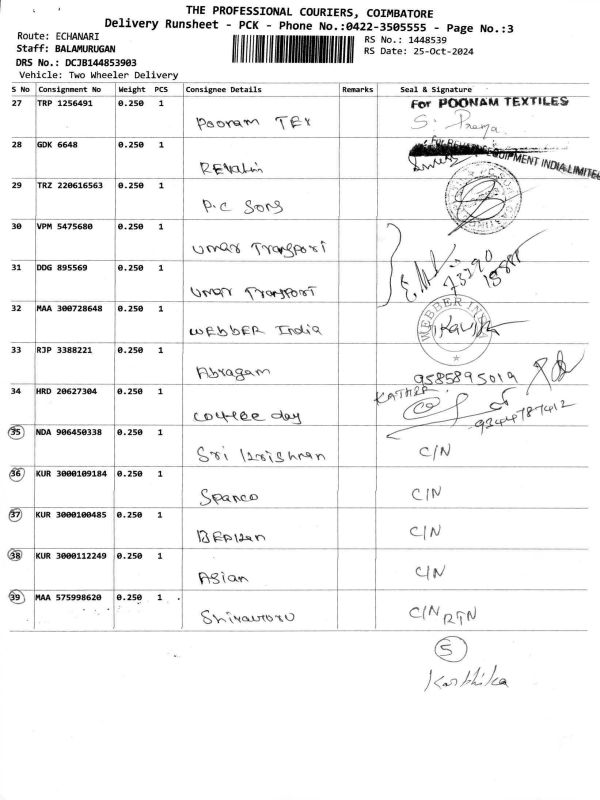 THE PROFESSIONAL COURIERS, COIMBATORE
Delivery Runsheet - PCK - Phone No.:0422-3505555 - Page No.:3
Route: ECHANARI
RS No.: 1448539
Staff: BALAMURUGAN
RS Date: 25-Oct-2024
DRS No.: DCJB144853903
Vehicle: Two Wheeler Delivery
S No Consignment No Weight PCS Consignee Details Remarks Seal & Signature
27 TRP 1256491 0.250 1 Poonam TEX For POONAM TEXTILES
S. Prema
28 GDK 6648 0.250 1 EQUIPMENT INDIA LIMITED
29 TRZ 220616563 0.250 1 P.C SONS
30 VPM 5475680 0.250 1 Umar Transport
31 DDG 895569 0.250 1 Umar Transport
73290
32 MAA 300728648 0.250 1 WEBBER India WEBBER INDIA
33 RJP 3388221 0.250 1 Abragam 9585895019
34 HRD 20627304 0.250 1 Coffee day KATHER
9344787412
35 NDA 906450338 0.250 1 Sri Krishnan C/N
36 KUR 3000109184 0.250 1 Spanco C/N
37 KUR 3000100485 0.250 1 C/N
38 KUR 3000112249 0.250 1 Asian C/N
39 MAA 575998620 0.250 1 C/N RTN
5
Karthika